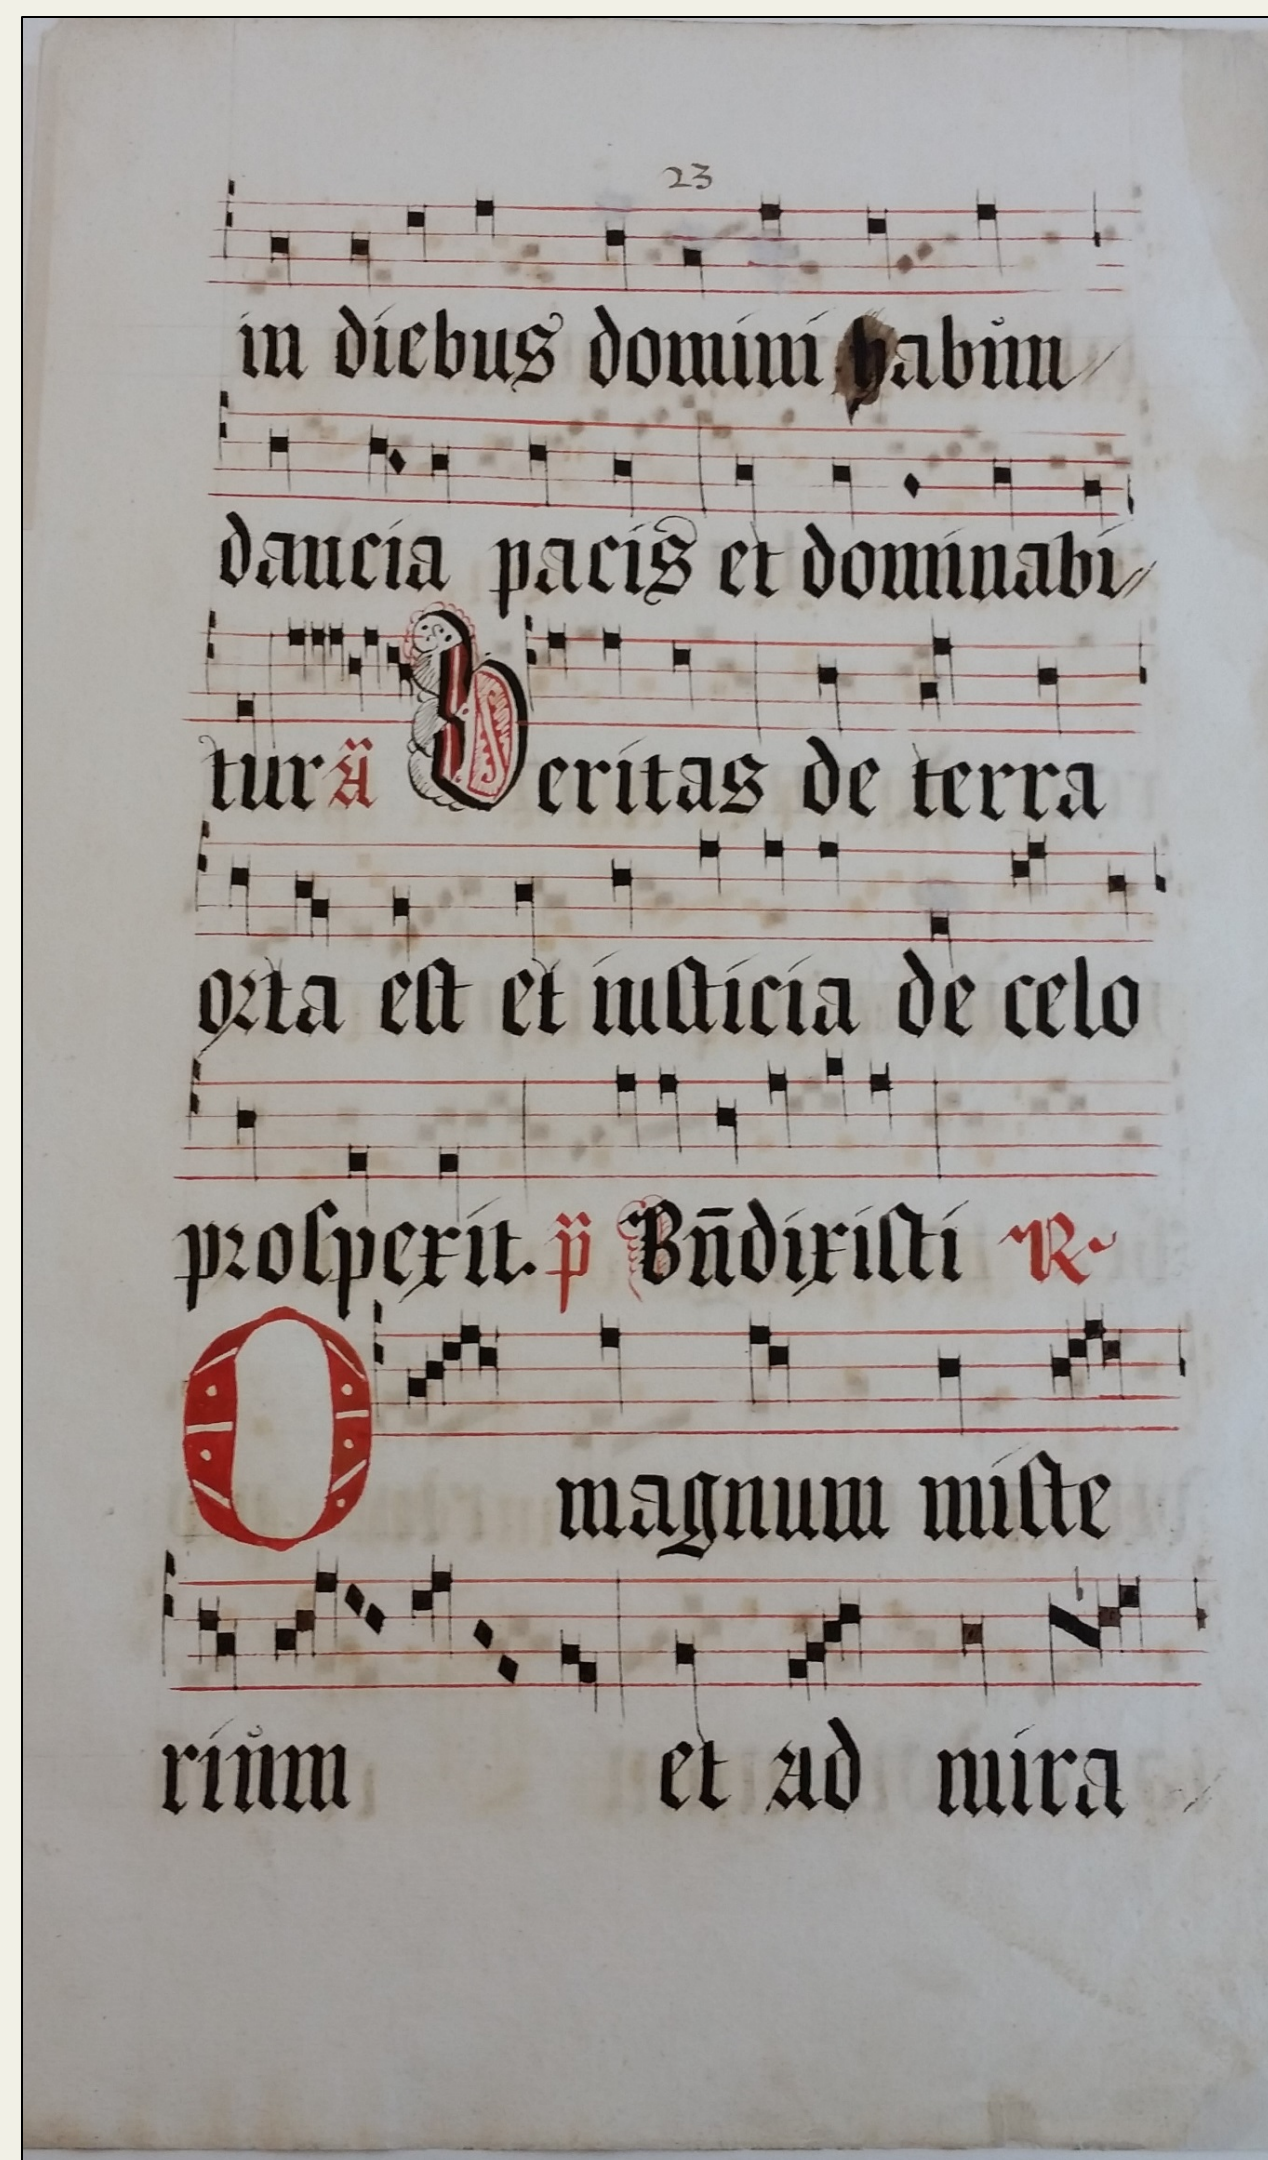 23
in diebus domini habun
dancia pacis et dominabi
tur ã Veritas de terra
orta est et iusticia de celo
prospexit. p̃ Bn̄dixisti R
O magnum miste
rium et ad mira